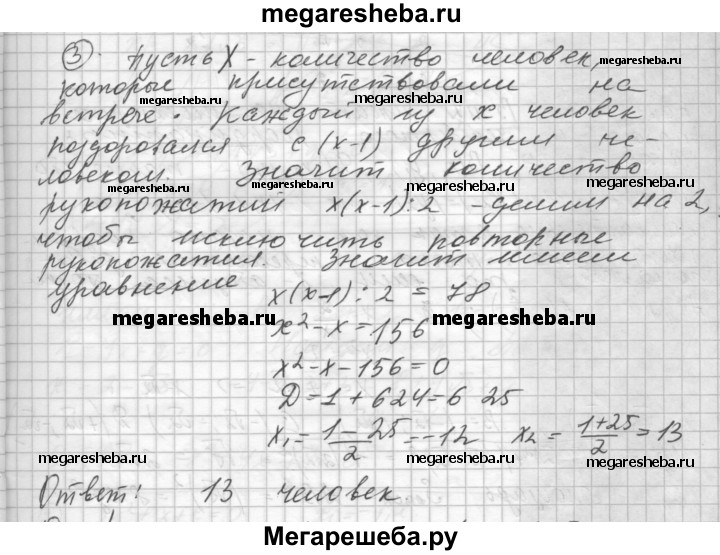 megaresheba.ru
③. Пусть X - количество человек,
megaresheba.ru
которые присутствовали на
megaresheba.ru
встрече. Каждый из x человек
megaresheba.ru
поздоровался с (x-1) другим че-
ловеком. Значит количество
megaresheba.ru megaresheba.ru
рукопожатий x(x-1):2 - делим на 2,
чтобы исключить повторные
рукопожатия. Значит имеем
уравнение
x(x-1):2 = 78
megaresheba.ru megaresheba.ru
x²-x=156
x²-x-156=0
D=1+624=625
x₁=(1-25)/2=-12 x₂=(1+25)/2=13
megaresheba.ru megaresheba.ru
Ответ: 13 человек.
megaresheba.ru megaresheba.ru
Мегарешеба.ру